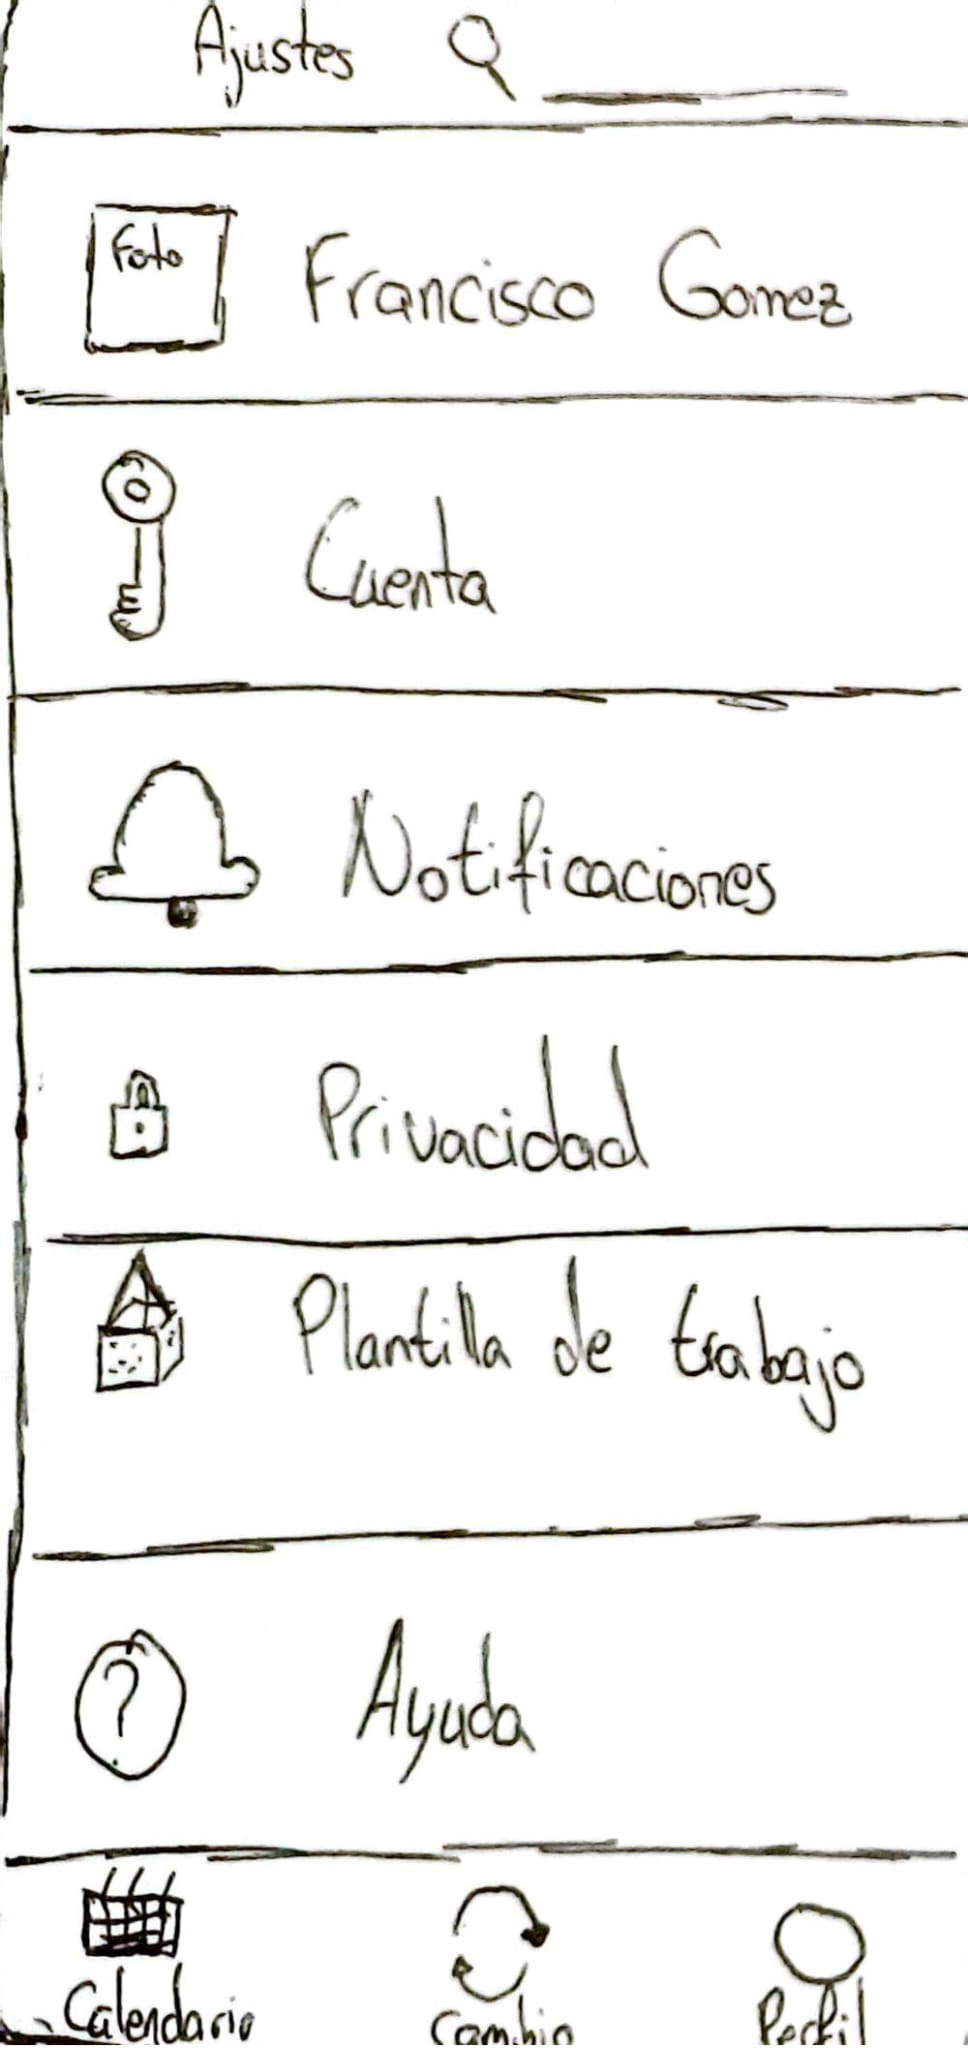 Ajustes
Foto
Francisco Gomez
Cuenta
Notificaciones
Privacidad
Plantilla de trabajo
?
Ayuda
Calendario
Cambio
Perfil